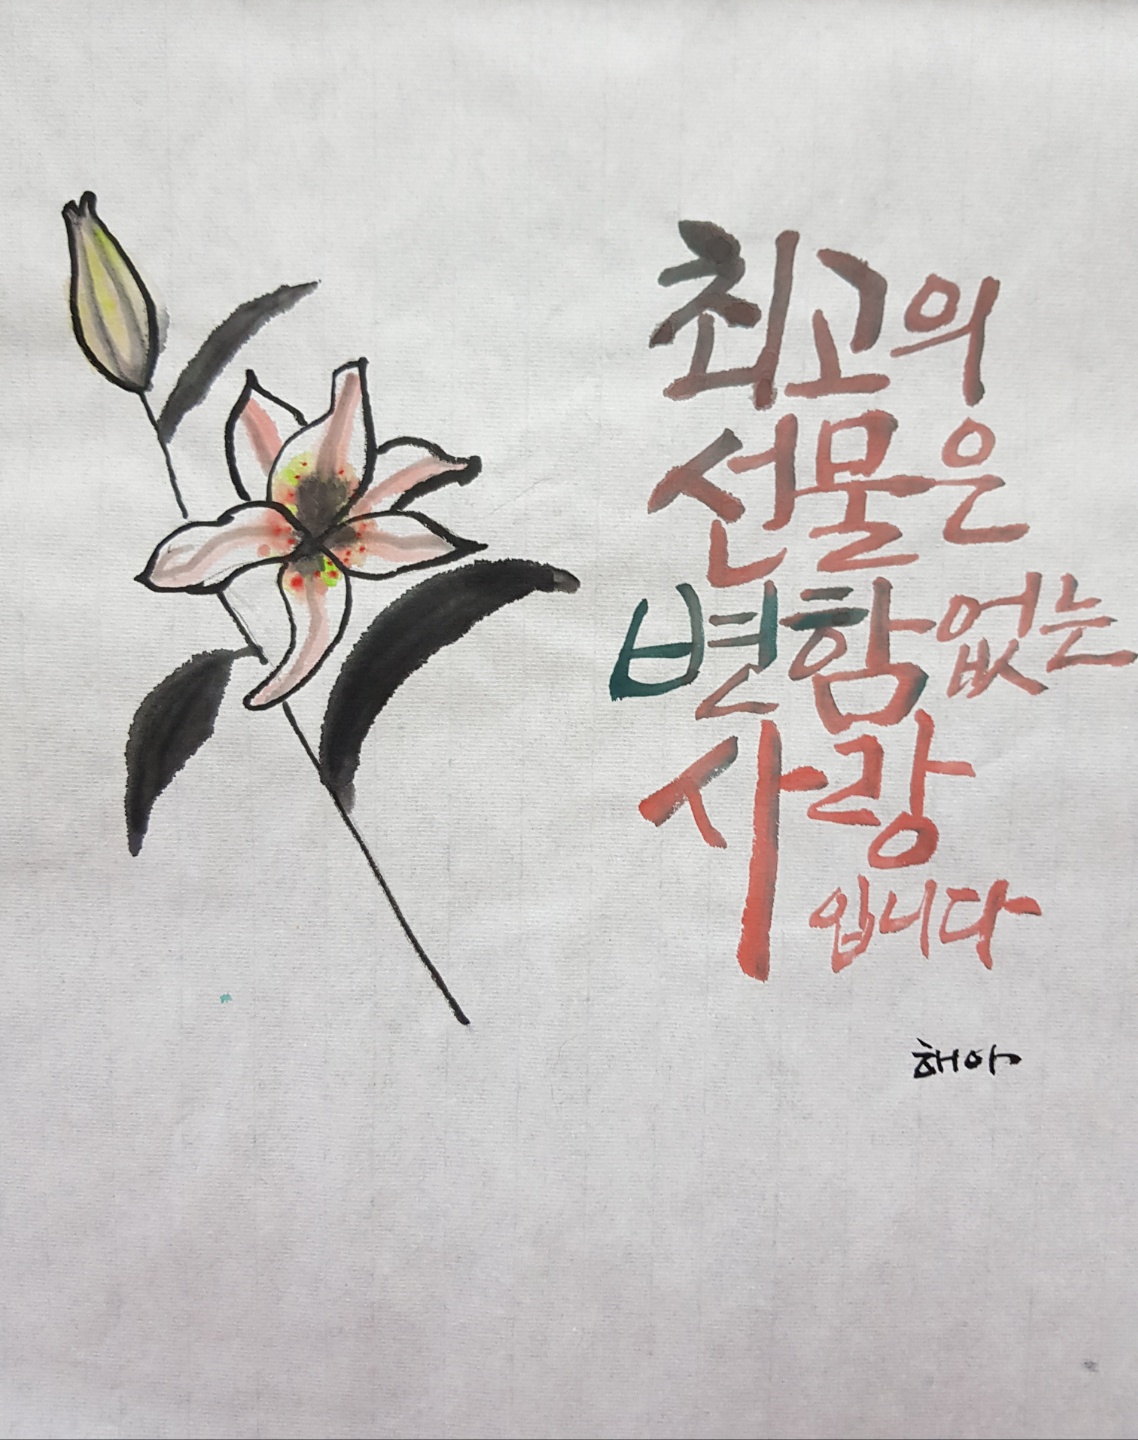 최고의
선물은
변함없는
사랑
입니다
해야